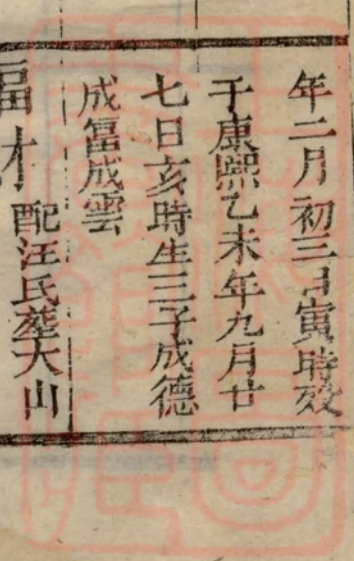 年二月初三日寅時歿
于康熙乙未年九月廿
七日亥時生三子成德
成富成雲
福才 配汪氏葬大山